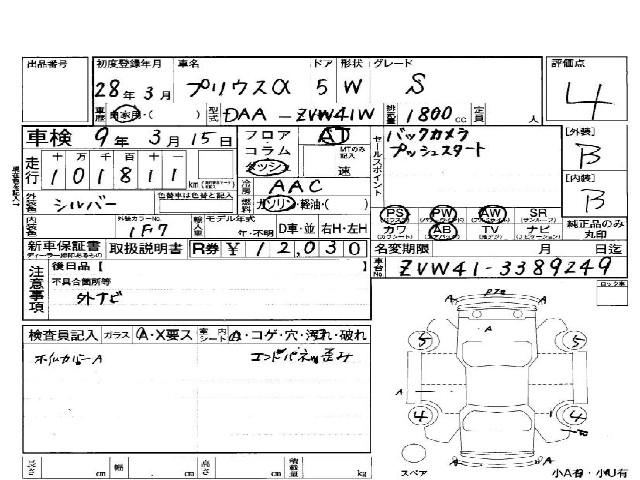 出品番号 初度登録年月 車名 ドア 形状 グレード 評価点
28年3月 プリウスα 5 W S 4
車歴 自家用・( ) 型式 DAA-ZVW41W 排気量 1800cc 定員 人
車検 9年3月15日 フロア・コラム・ダッシュ AT MTのみ記入 速 セールスポイント バックカメラ [外装]
プッシュスタート B
走行 十万千百十一
101811 km
[内装]
外装色 シルバー 色替車は色替と記入 冷房 AAC B
燃料 ガソリン・軽油・( ) PS PW AW SR
内装色 外装カラーNo. 1F7 輸入車 モデル年式 年・不明 D車・並 右H・左H カワ AB TV ナビ 純正品のみ丸印
新車保証書 取扱説明書 R券 ¥12,030 名変期限 月 日迄
車台No. ZVW41-3389249
注意事項 後日品【 】 ロック車
不具合箇所等
外ナビ
検査員記入 ガラス A・X要ス 室内シート A・コゲ・穴・汚れ・破れ
ホイルカバーA エンドパネル歪み
A A
A
5 5
A A
4 4
A A
長さ cm 幅 cm 高さ cm 積載量 kg
スペア 小A有・小U有